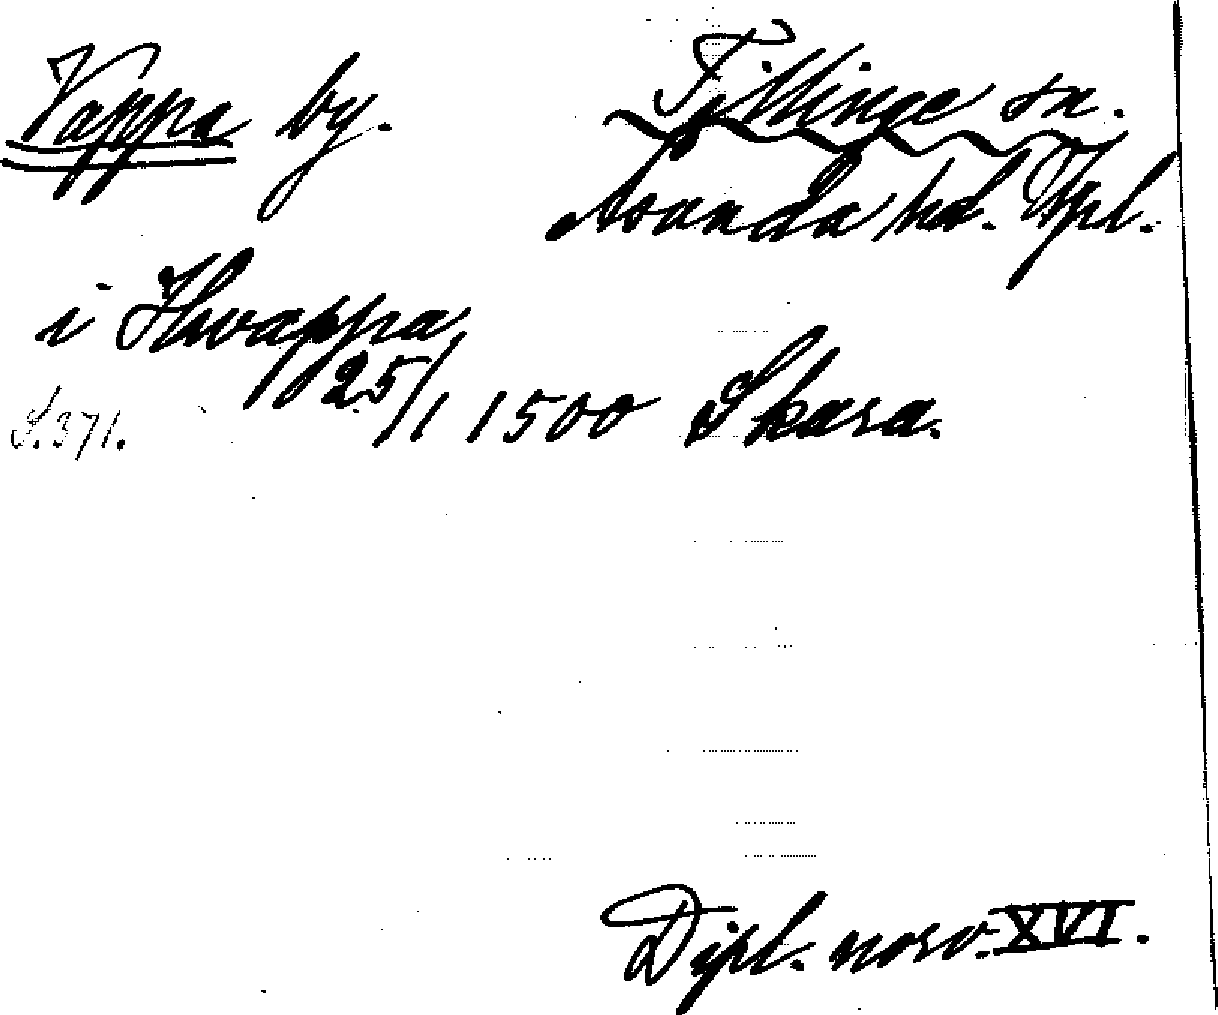 Vappa by.
Tillinge sn.
Åsunda hd. Uppl.
i Hwappa
25/1 1500 Skara.
S. 371.
Dipl. norv. XVI.